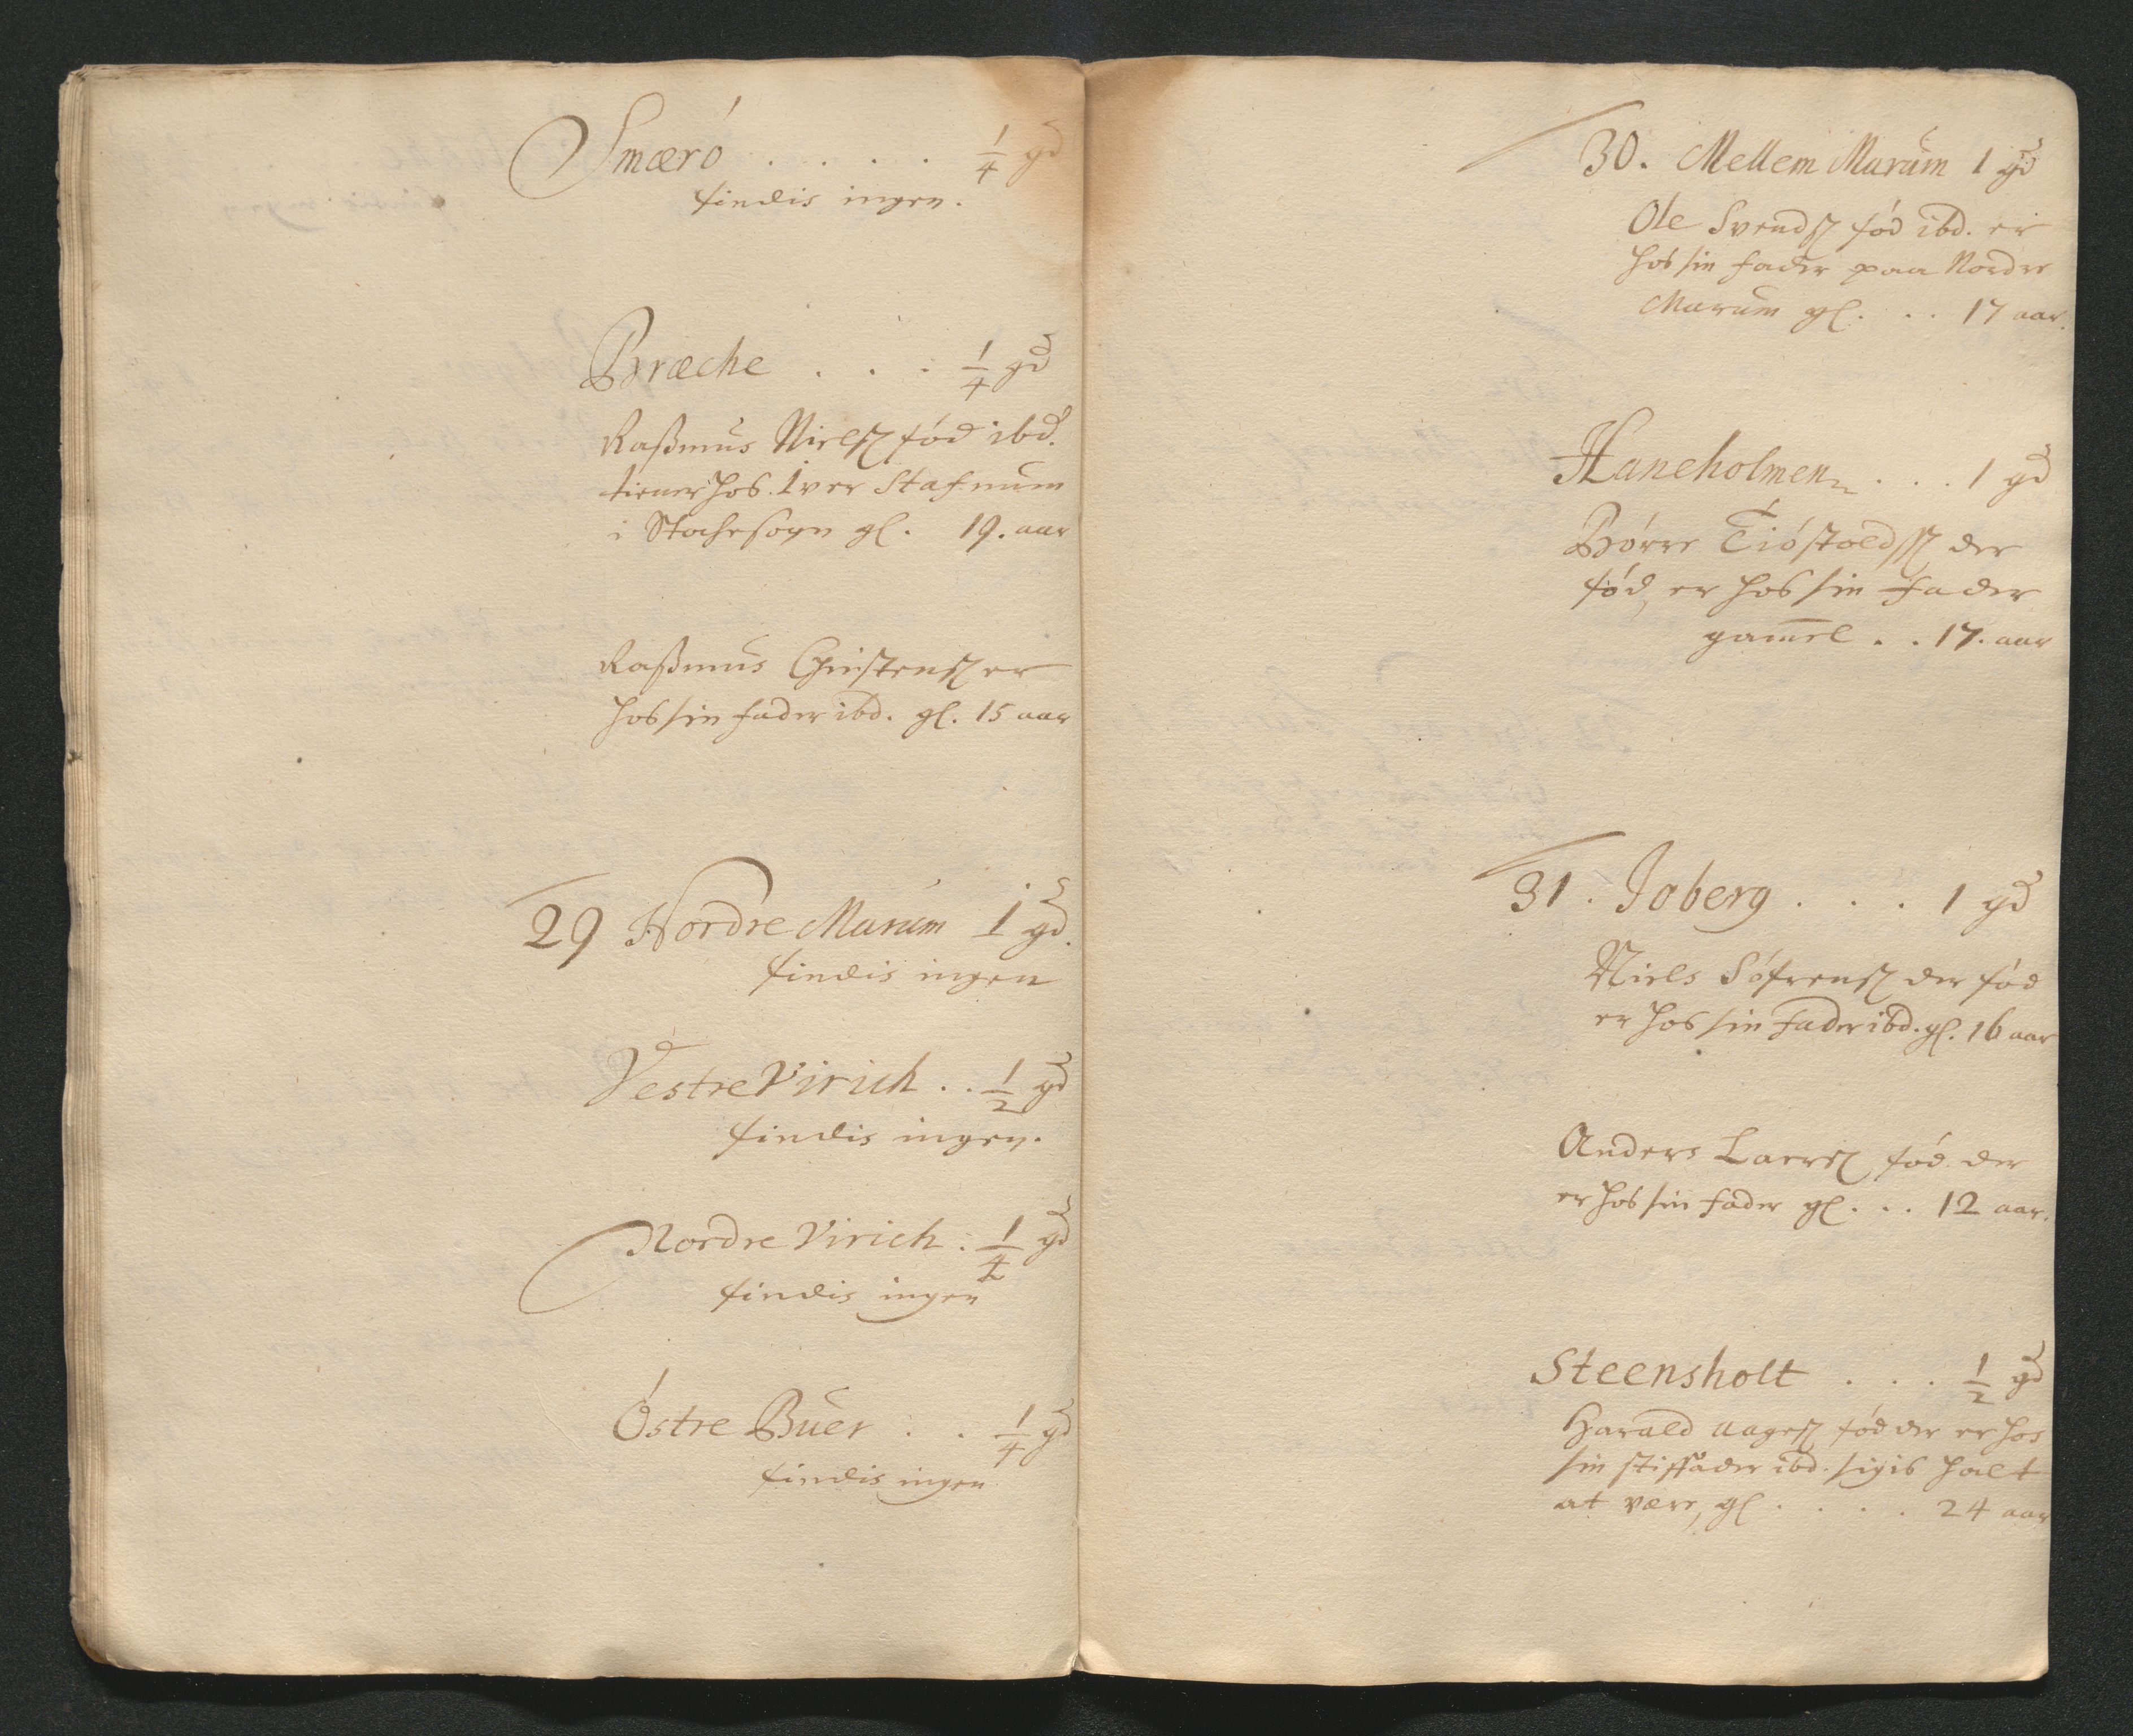 Smæró . . . . . 1/4 gd
findis ingen.
Bræche . . . 1/4 gd
Raßmus Nielsß fód ibd.
tiener hos Iver Stafnum
i Stochesogn gl. 19. aar
Raßmus Christensß er
hos sin fader ibd. gl. 15 aar
29 Nordre Marum 1 gd.
findis ingen
Vestre Virich . . 1/2 gd
findis ingen.
Nordre Virich . 1/4 gd
findis ingen
Óstre Buer . . 1/4 gd
findis ingen
30. Mellem Marum 1 gd
Ole Svendsß fód ibd. er
hos sin fader paa Nordre
Marum gl. . . 17 aar.
Haneholmen . . . 1 gd
Bórre Tióstoldsß der
fód, er hos sin fader
gam̄el . . 17. aar
31. Joberg . . . 1 gd
Niels Sófrensß der fód
er hos sin fader ibd. gl. 16 aar
Anders Larsß fód der
er hos sin fader gl. . . 12 aar.
Steensholt . . . 1/2 gd
Harald Aagesß fód der er hos
sin stiffader ibd. sigis halt
at være, gl . . . . 24 aar